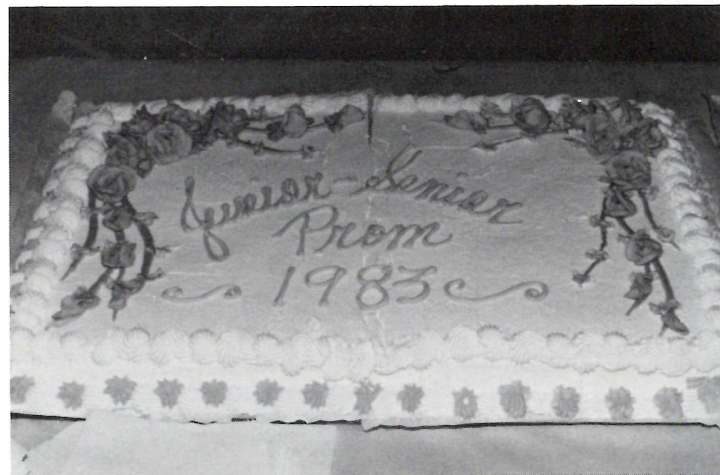 Junior-Senior
Prom
1983